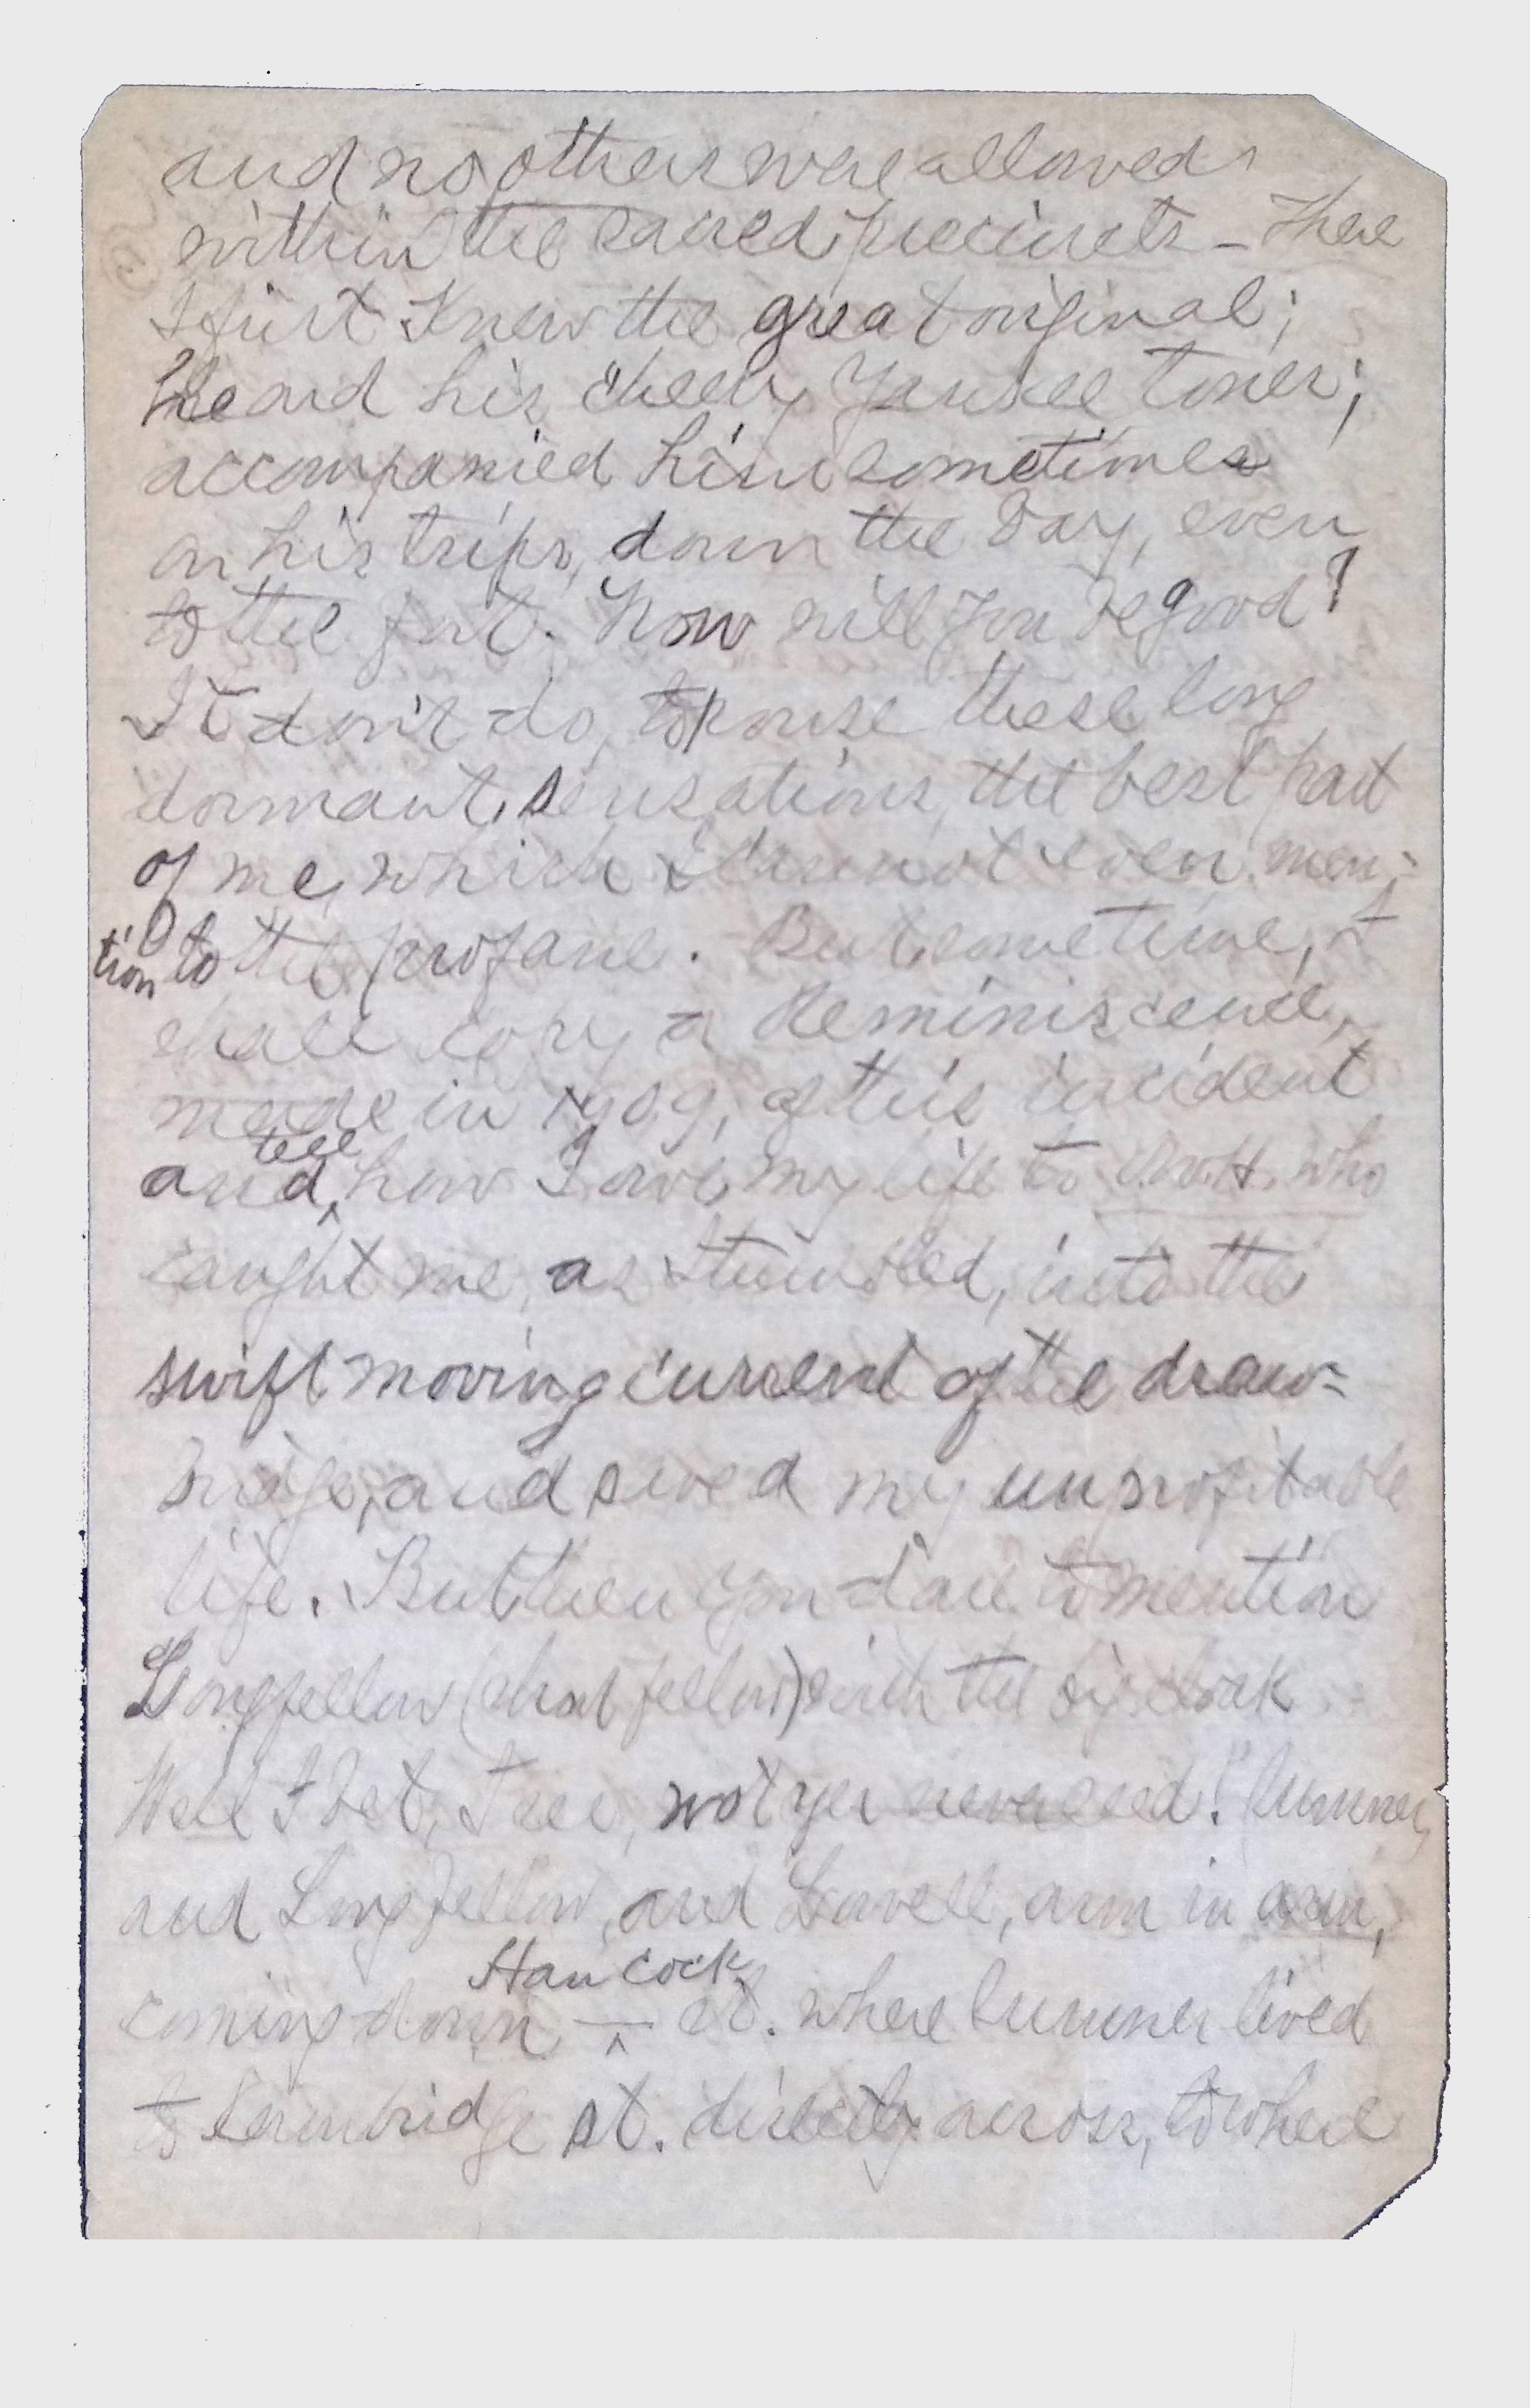 and no others were allowed
within the sacred precincts - There
I first knew the great original;
Heard his cheery Yankee tones;
accompanied him sometimes
on his trips, down the Bay, even
to the fort. Now will you be good?
It don't do, to rouse these long
dormant sensations, the best part
of me, which I cannot even men-
tion to the profane. But sometime, I
shall copy a Reminiscence,
made in 1909, of this incident
and tell how I owe my life to who
caught me, as I stumbled, into the
swift moving current of the draw=
bridge, and saved my unprofitable
life. But then you dare to mention
Longfellow (short fellow) with the big cloak
Well I bet, I see, wot yer never seed! Sumner,
and Longfellow, and Lowell, arm in arm,
coming down Hancock st. where Sumner lived
to Cambridge st. directly across, to where